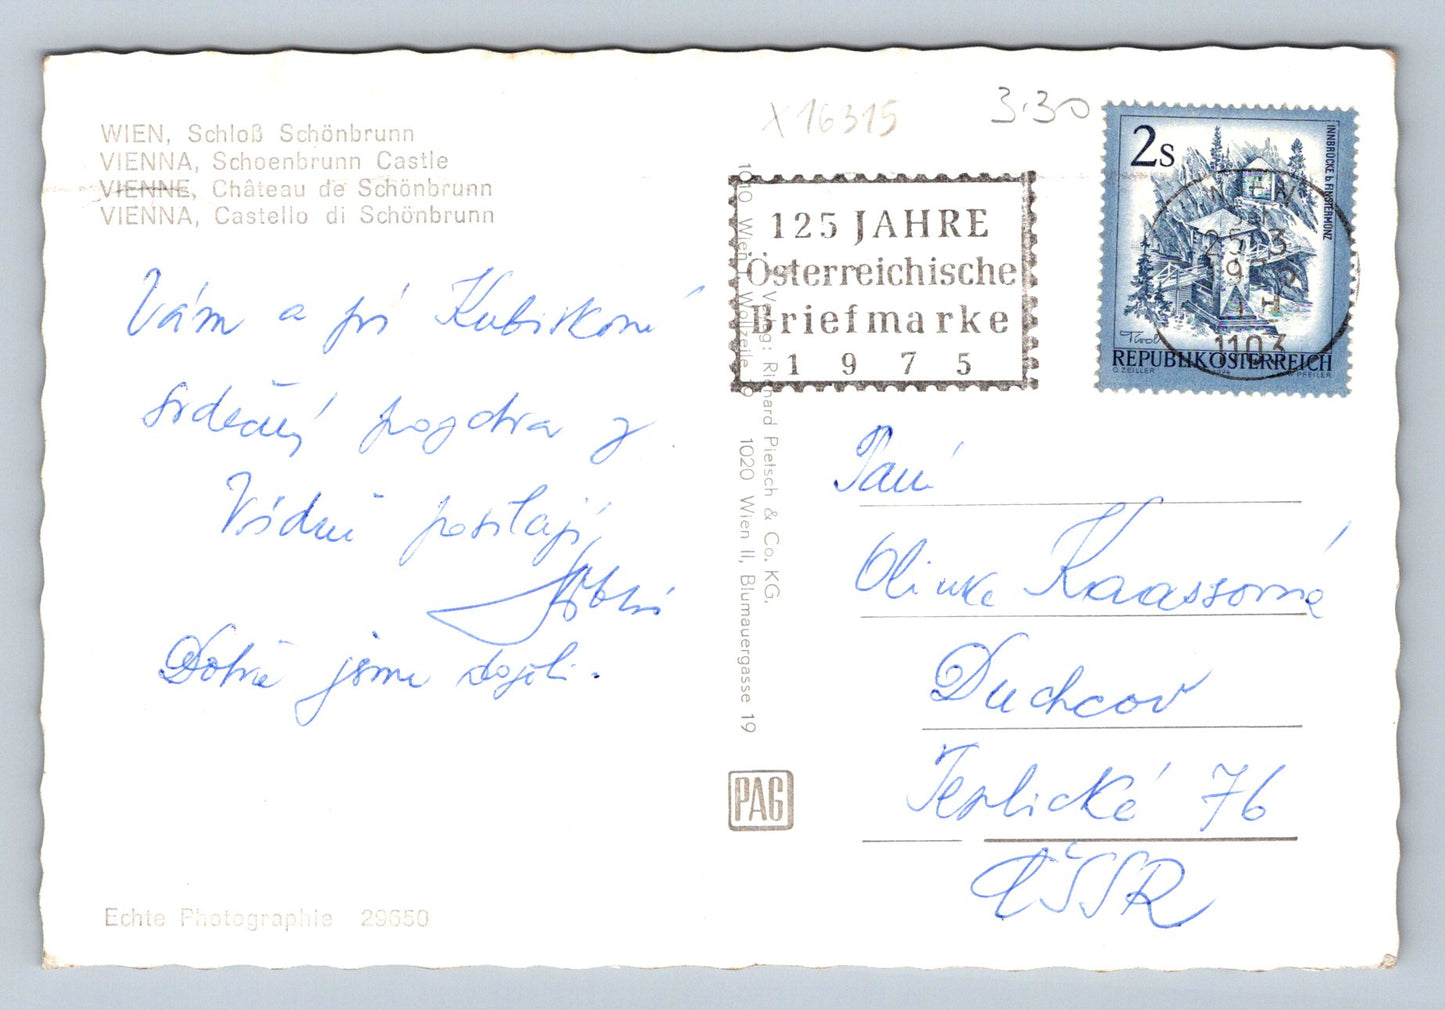 WIEN, Schloß Schönbrunn
VIENNA, Schoenbrunn Castle
VIENNE, Château de Schönbrunn
VIENNA, Castello di Schönbrunn
X16315
3.30
125 JAHRE
Österreichische
Briefmarke
1975
2s
INNBRÜCKE b. FINSTERMÜNZ
Tirol
REPUBLIK ÖSTERREICH
G. ZEILLER
PFEILER
WIEN
1103
Vám a pí Kubiskoné
srdečný pozdrav z
Vídně posílají
Dobře jsme dojeli.
Verlag: Richard Pietsch & Co. KG.
1010 Wien I, Wollzeile 1020 Wien II, Blumauergasse 19
PAG
Paní
Olinka Kaassorné
Duchcov
Teplická 76
ČSSR
Echte Photographie 29650